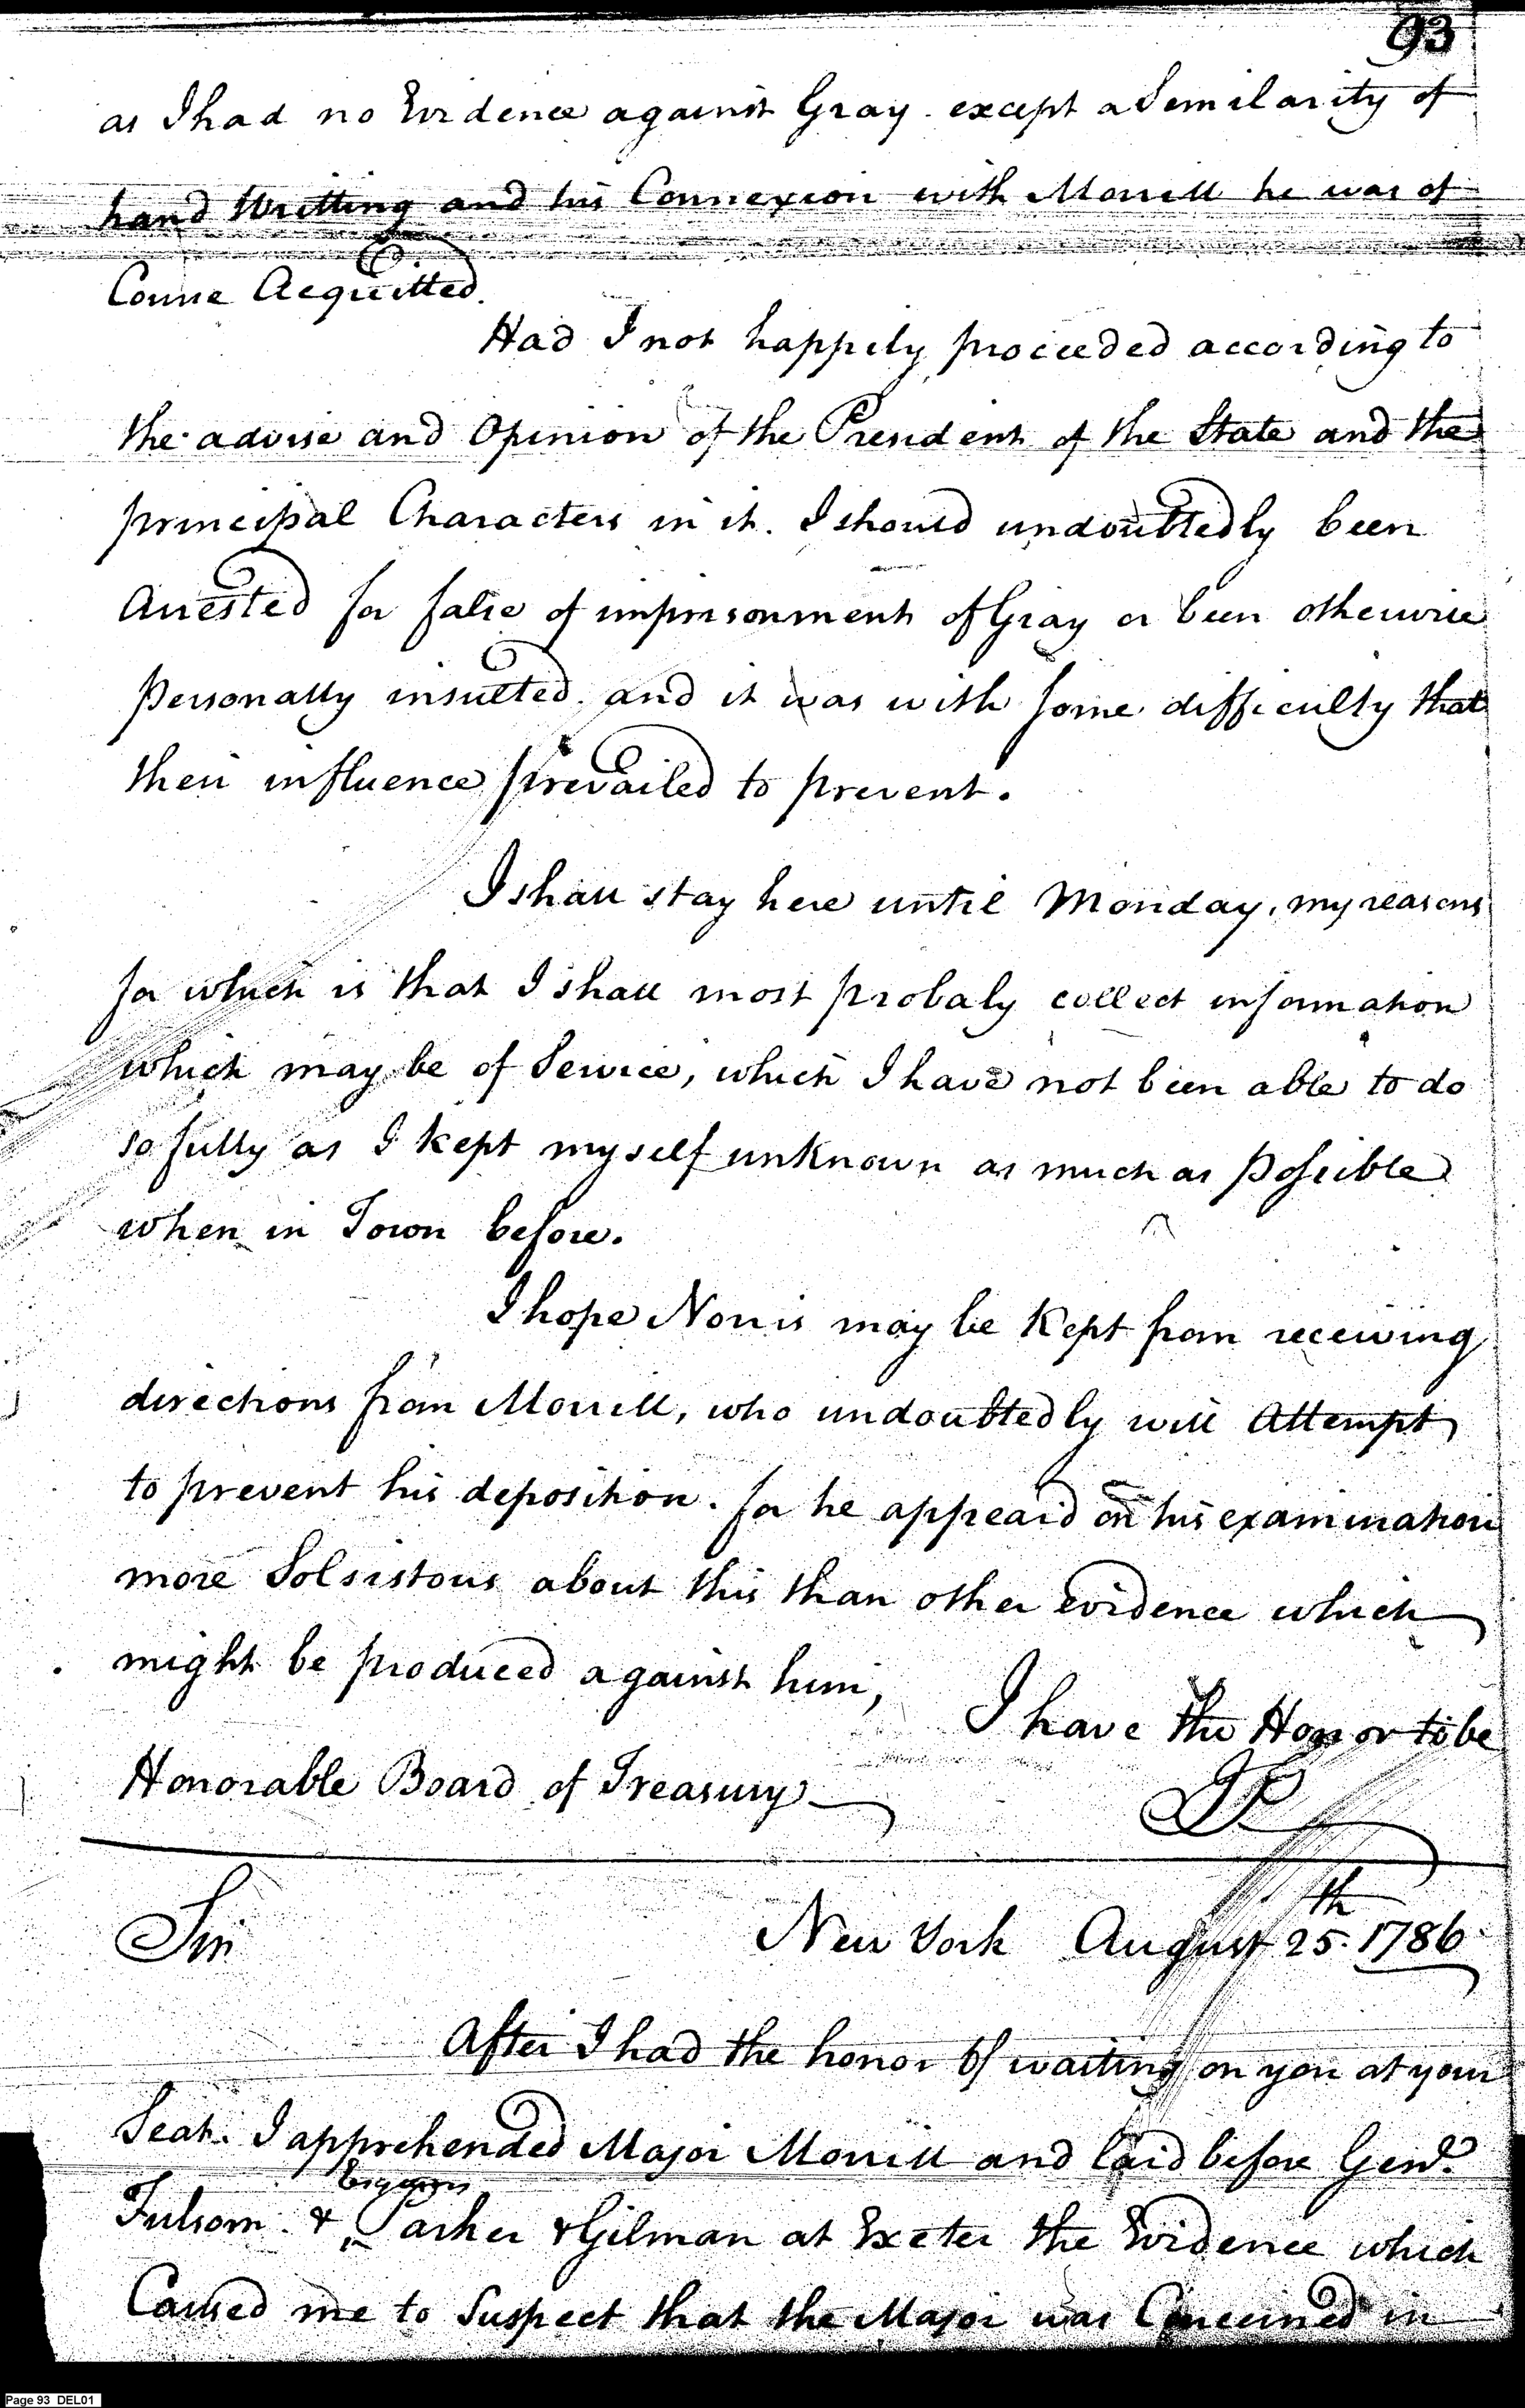 93
as I had no Evidence against Gray. except a Semilarity of
hand Writting and his Connexion with Morrill he was of
Course Acquitted.
Had I not happily proceeded according to
the advise and Opinion of the President of the State and the
principal Characters in it. I should undoubtedly been
Arrested for false of imprisonment of Gray or been otherwise
personally insulted. and it was with some difficulty that
their influence prevailed to prevent.
I shall stay here until Monday, my reasons
for which is that I shall most probaly collect information
which may be of Service, which I have not been able to do
so fully as I kept myself unknown as much as possible
when in Town before.
I hope Norris may be kept from receiving
directions from Morrill, who undoubtedly will Attempt
to prevent his deposition. for he appeard on his examination
more Solsistous about this than other evidence which
might be produced against him,
I have the Honor to be
Honorable Board of Treasury
JP
Sir
New York August 25th. 1786
After I had the honor of waiting on you at your
Seat. I apprehended Major Morrill and laid before Genl.
Fulsom. & Parker & Gilman at Exeter the Evidence which
Caused me to Suspect that the Major was Concerned in
Page 93 DEL01